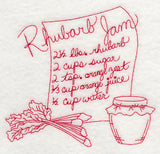 Rhubarb Jam
2½ lbs. rhubarb
2 cups sugar
2 tsps. orange zest
⅓ cup orange juice
½ cup water